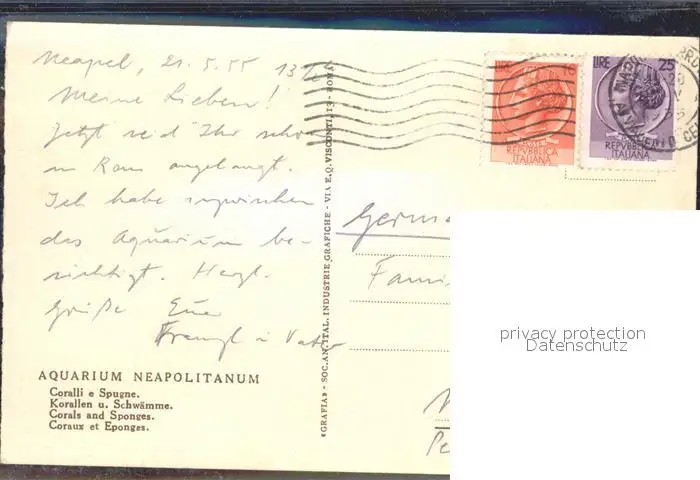 Neapel, 21.5.55 13
Meine Lieben!
Jetzt seid Ihr schon
in Rom angelangt.
Ich habe inzwischen
das Aquarium be-
sichtigt. Herzl.
Grüße Eure
Franzl u. Vater
AQUARIUM NEAPOLITANUM
Coralli e Spugne.
Korallen u. Schwämme.
Corals and Sponges.
Coraux et Eponges.
«GRAFIA» - SOC. AN. ITAL. INDUSTRIE GRAFICHE - VIA E. Q. VISCONTI, 13 - ROMA
LIRE 25
REPVBBLICA
ITALIANA
REPVBBLICA
ITALIANA
Germa
Fami
privacy protection
Datenschutz